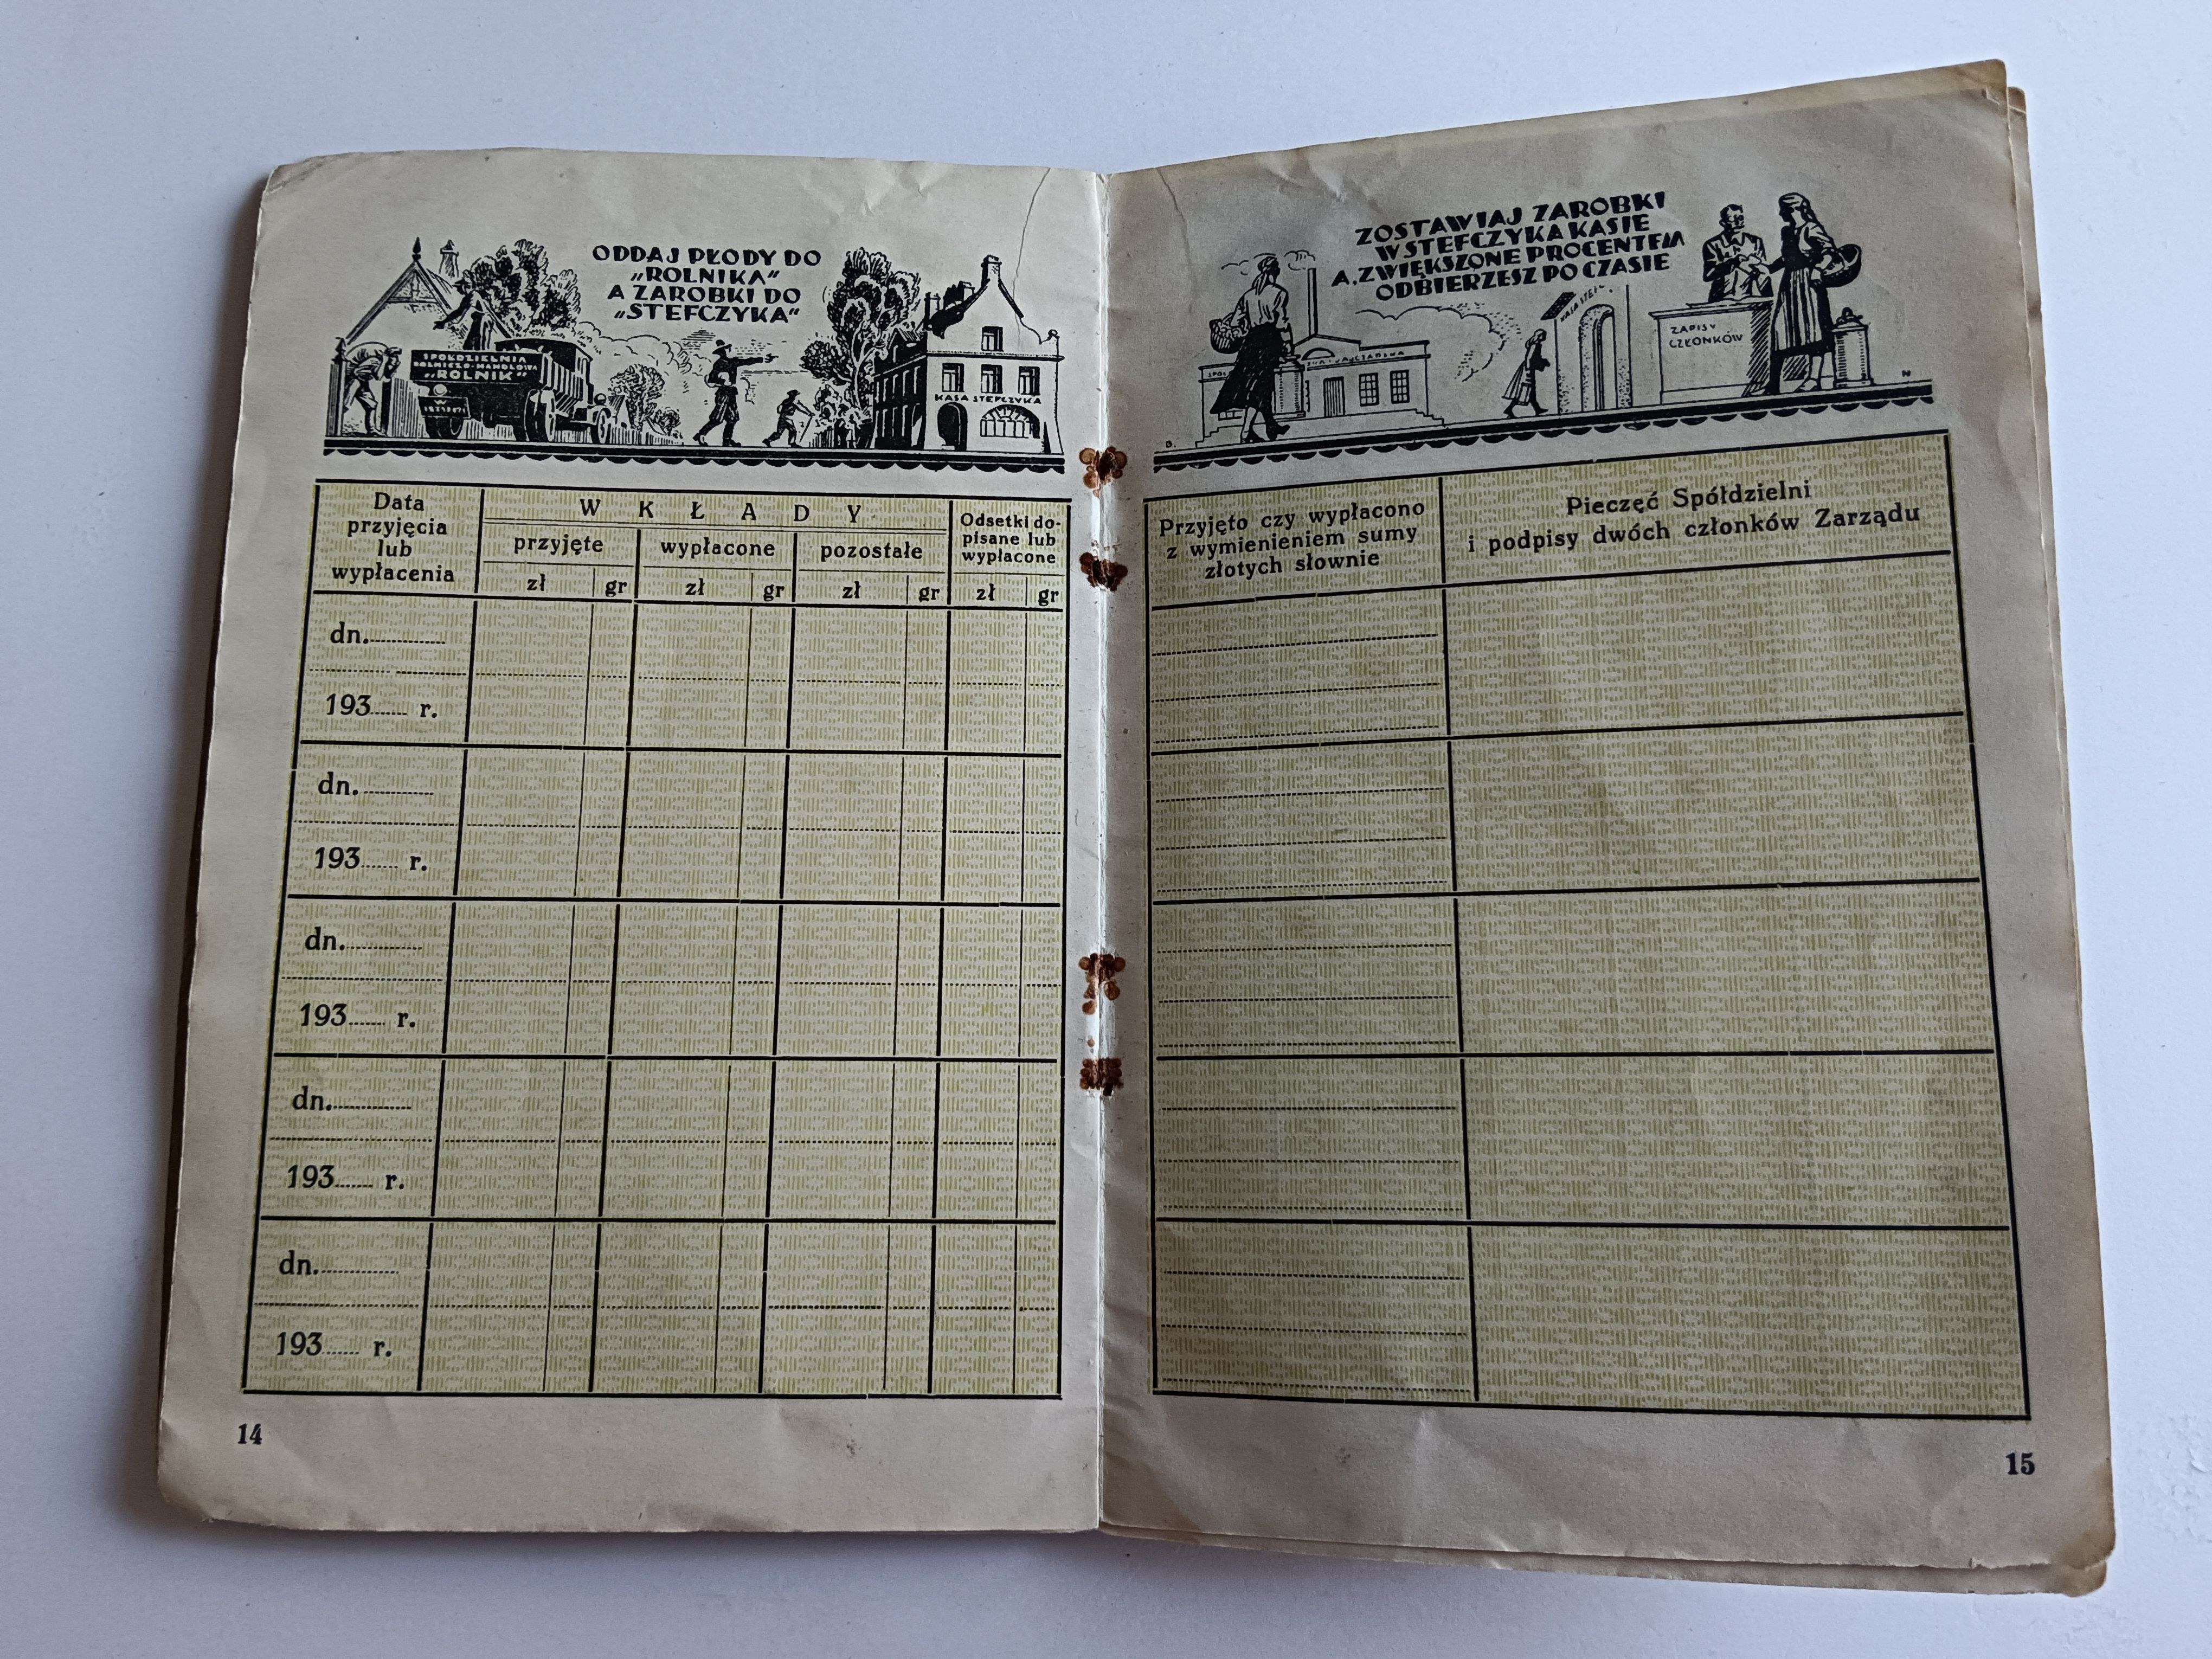 ODDAJ PŁODY DO
„ROLNIKA”
A ZAROBKI DO
„STEFCZYKA”
SPÓŁDZIELNIA
ROLNICZO-HANDLOWA
„ROLNIK”
KASA STEFCZYKA
Data
przyjęcia
lub
wypłacenia
WKŁADY
przyjęte
wypłacone
pozostałe
Odsetki do-
pisane lub
wypłacone
zł gr zł gr zł gr zł gr
dn.
193 r.
dn.
193 r.
dn.
193 r.
dn.
193 r.
dn.
193 r.
14
ZOSTAWIAJ ZAROBKI
W STEFCZYKA KASIE
A, ZWIĘKSZONE PROCENTEM
ODBIERZESZ PO CZASIE
ZAPISY
CZŁONKÓW
Przyjęto czy wypłacono
z wymienieniem sumy
złotych słownie
Pieczęć Spółdzielni
i podpisy dwóch członków Zarządu
15